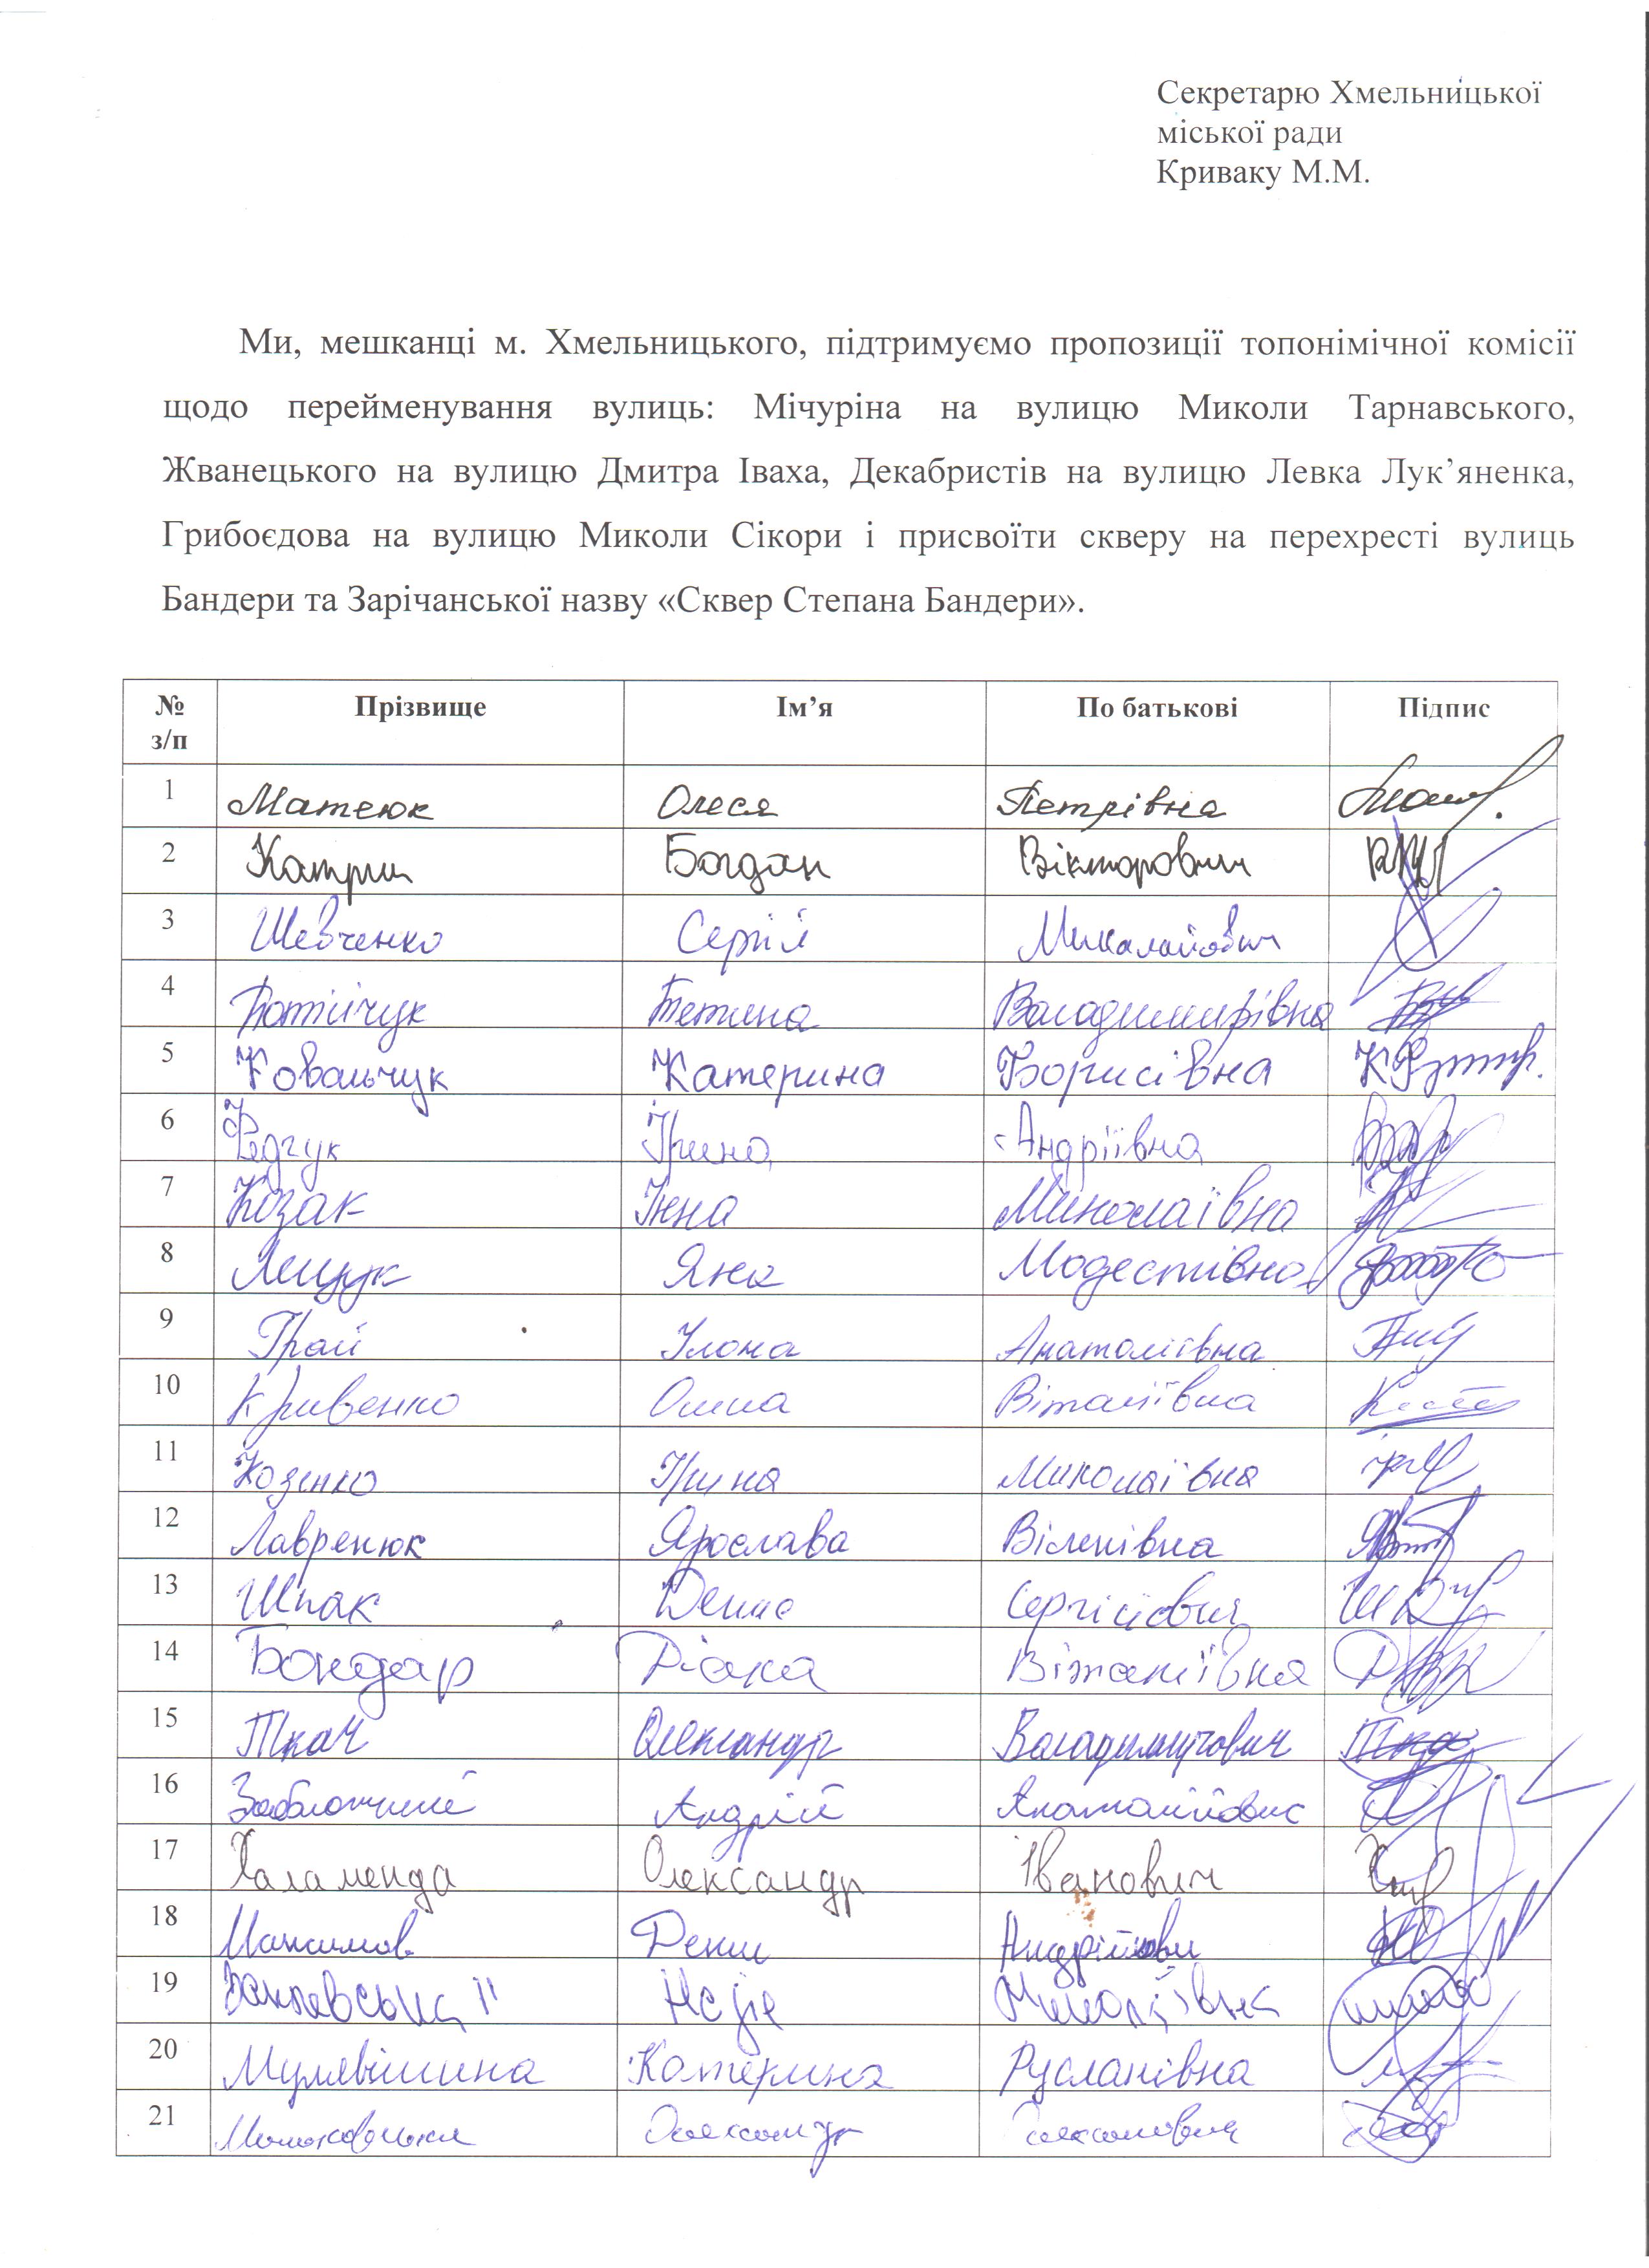 Секретарю Хмельницької
міської ради
Криваку М.М.
Ми, мешканці м. Хмельницького, підтримуємо пропозиції топонімічної комісії
щодо перейменування вулиць: Мічуріна на вулицю Миколи Тарнавського,
Жванецького на вулицю Дмитра Іваха, Декабристів на вулицю Левка Лук’яненка,
Грибоєдова на вулицю Миколи Сікори і присвоїти скверу на перехресті вулиць
Бандери та Зарічанської назву «Сквер Степана Бандери».
№ з/п Прізвище Ім’я По батькові Підпис
1 Матеюк Олеся Петрівна
2 Богдан Вікторович
3 Шевченко Сергій Миколайович
4 Тетяна Володимирівна
5 Ковальчук Катерина Борисівна
6 Федчук Ірина Андріївна
7 Козак Інна Миколаївна
8 Яна Модестівна
9 Грай Ілона Анатоліївна
10 Кривенко Віталіївна
11 Козенко Ірина Миколаївна
12 Лавренюк Ярослава Віленівна
13 Шпак Денис Сергійович
14 Бондар Діана Віталіївна
15 Ткач Олександр Володимирович
16 Андрій
17 Халаменда Олександр Іванович
18 Денис
19 Миколаївна
20 Катерина Русланівна
21 Олександр